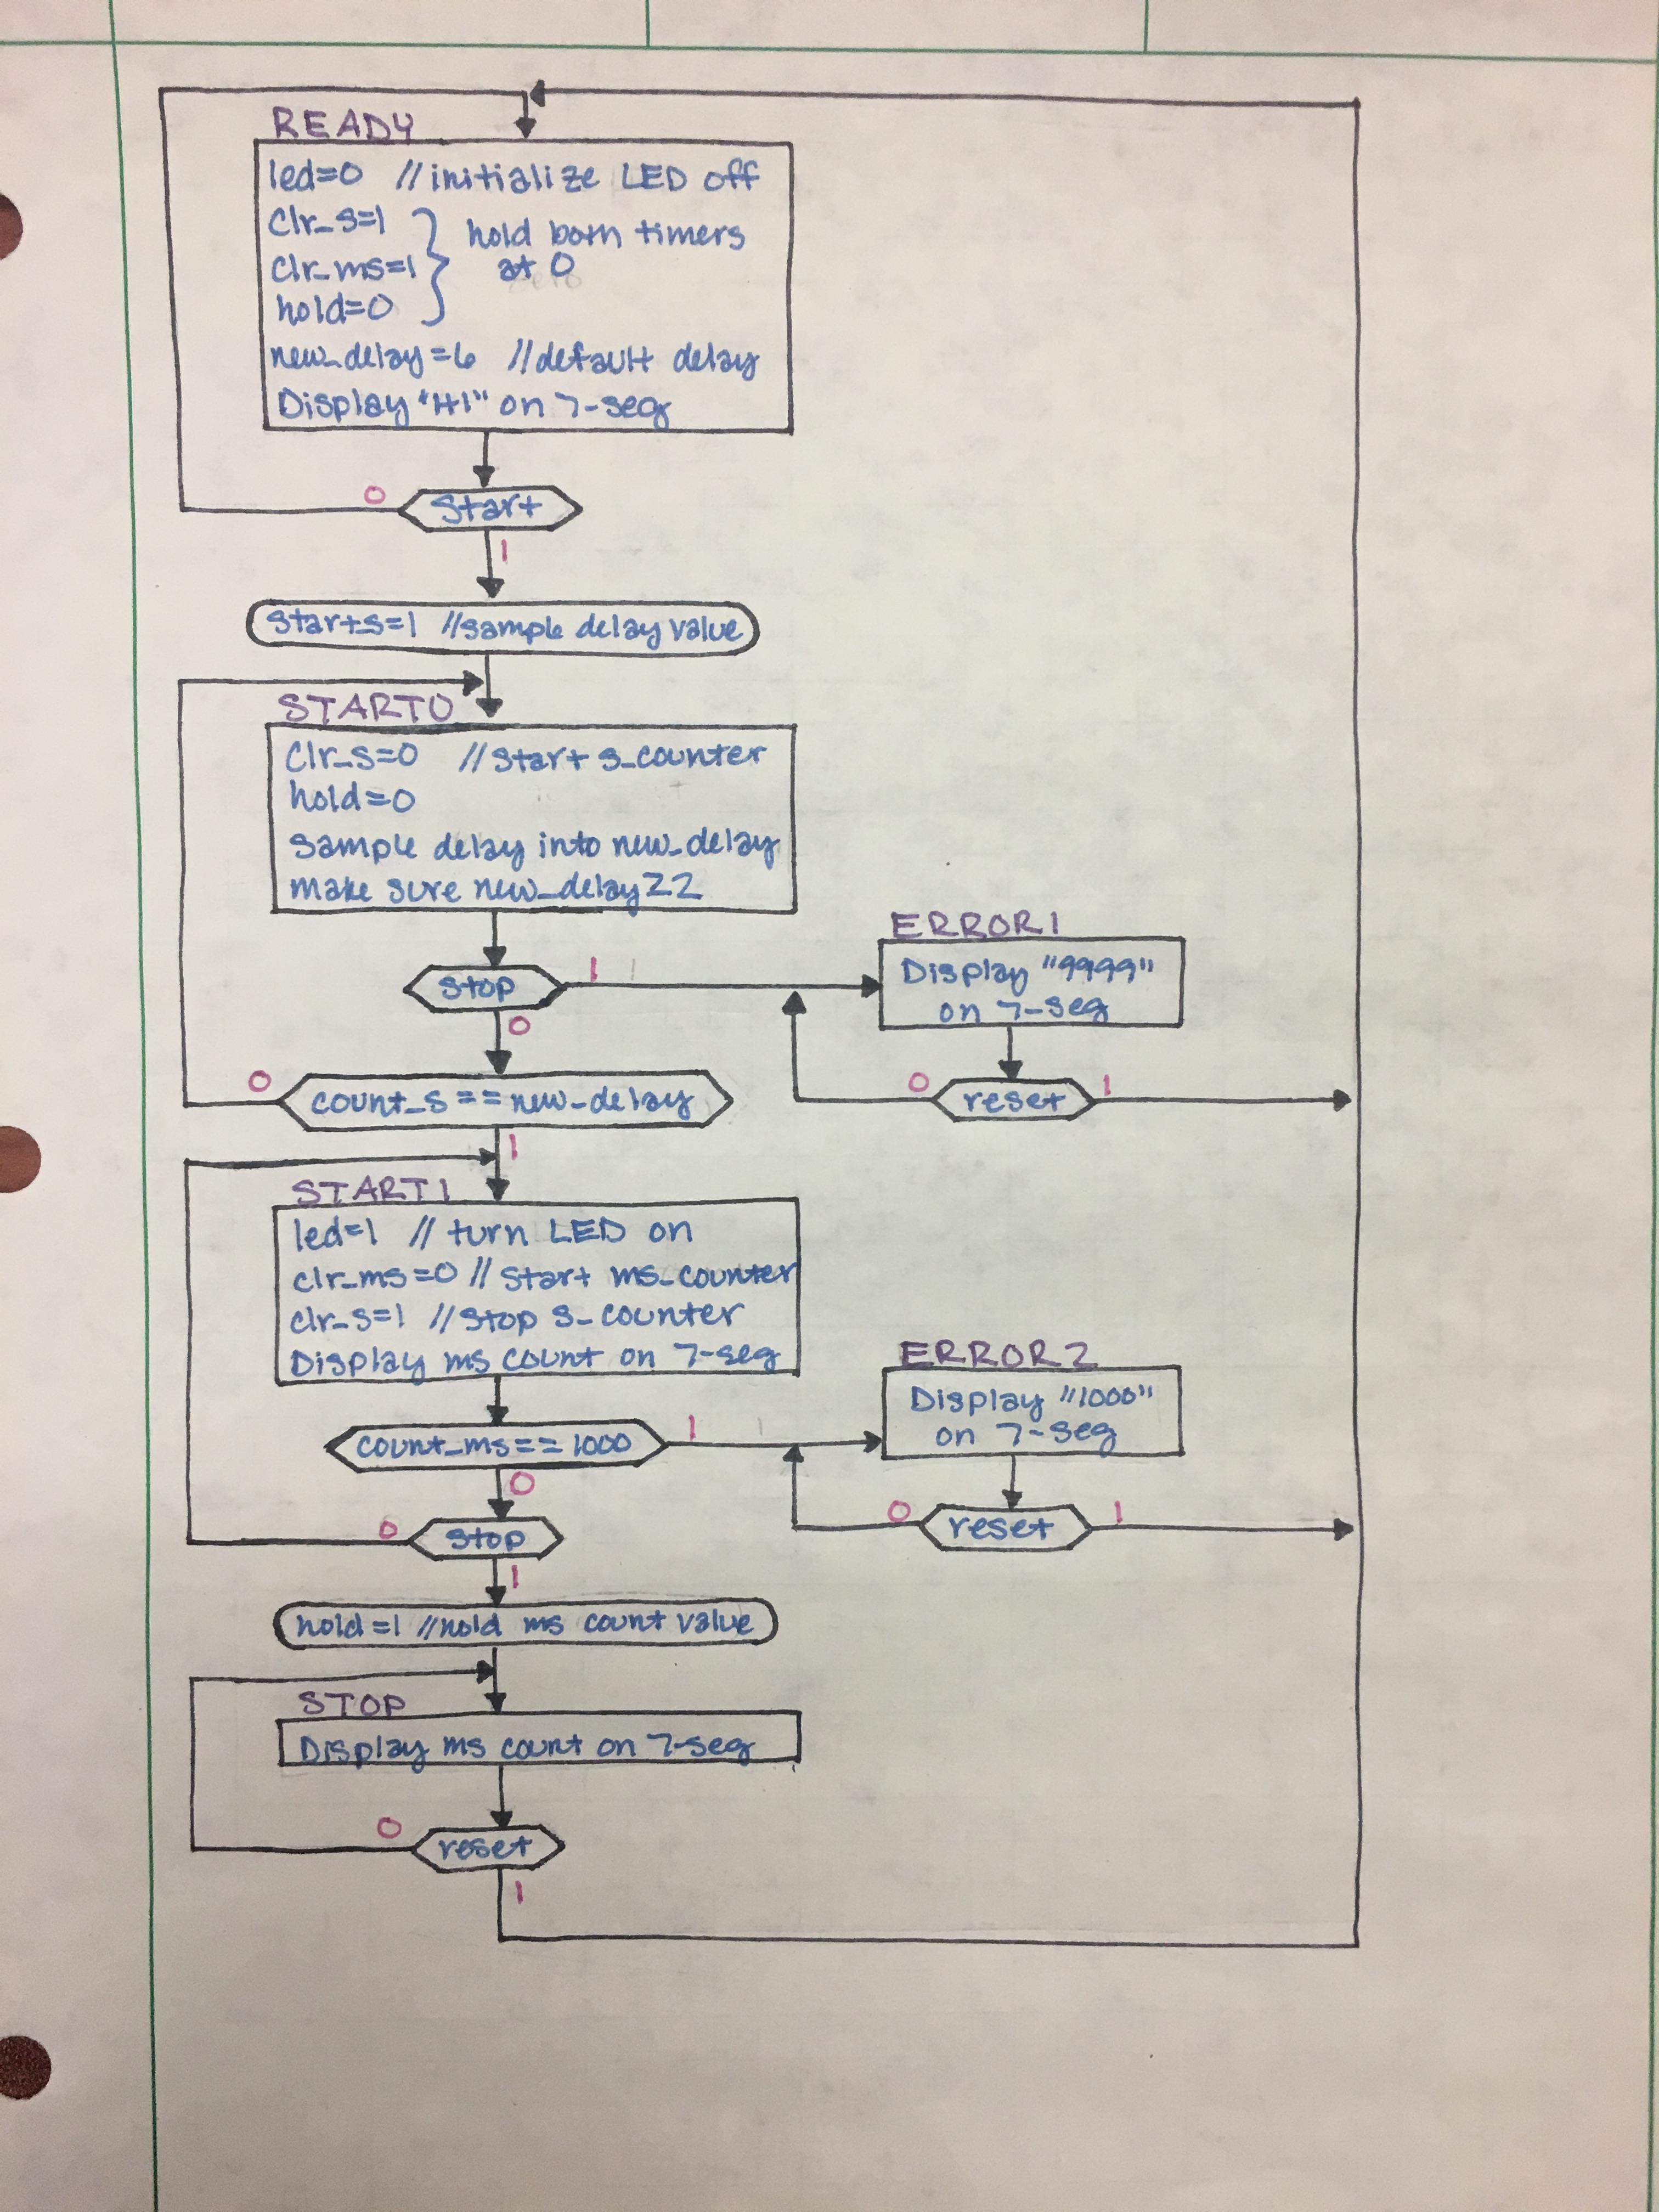 READY
led=0 //initialize LED off
clr_s=1
clr_ms=1 } hold both timers
hold=0 } at 0
new_delay=6 //default delay
Display "HI" on 7-seg
Start
0
1
start_s=1 //sample delay value
START0
clr_s=0 //start s_counter
hold=0
sample delay into new_delay
make sure new_delay≥2
Stop
1
0
ERROR1
Display "9999"
on 7-seg
reset
0
1
count_s==new_delay
0
1
START1
led=1 // turn LED on
clr_ms=0 // start ms_counter
clr_s=1 // stop s_counter
Display ms count on 7-seg
count_ms==1000
1
0
ERROR2
Display "1000"
on 7-seg
reset
0
1
Stop
0
1
hold=1 //hold ms count value
STOP
Display ms count on 7-seg
reset
0
1